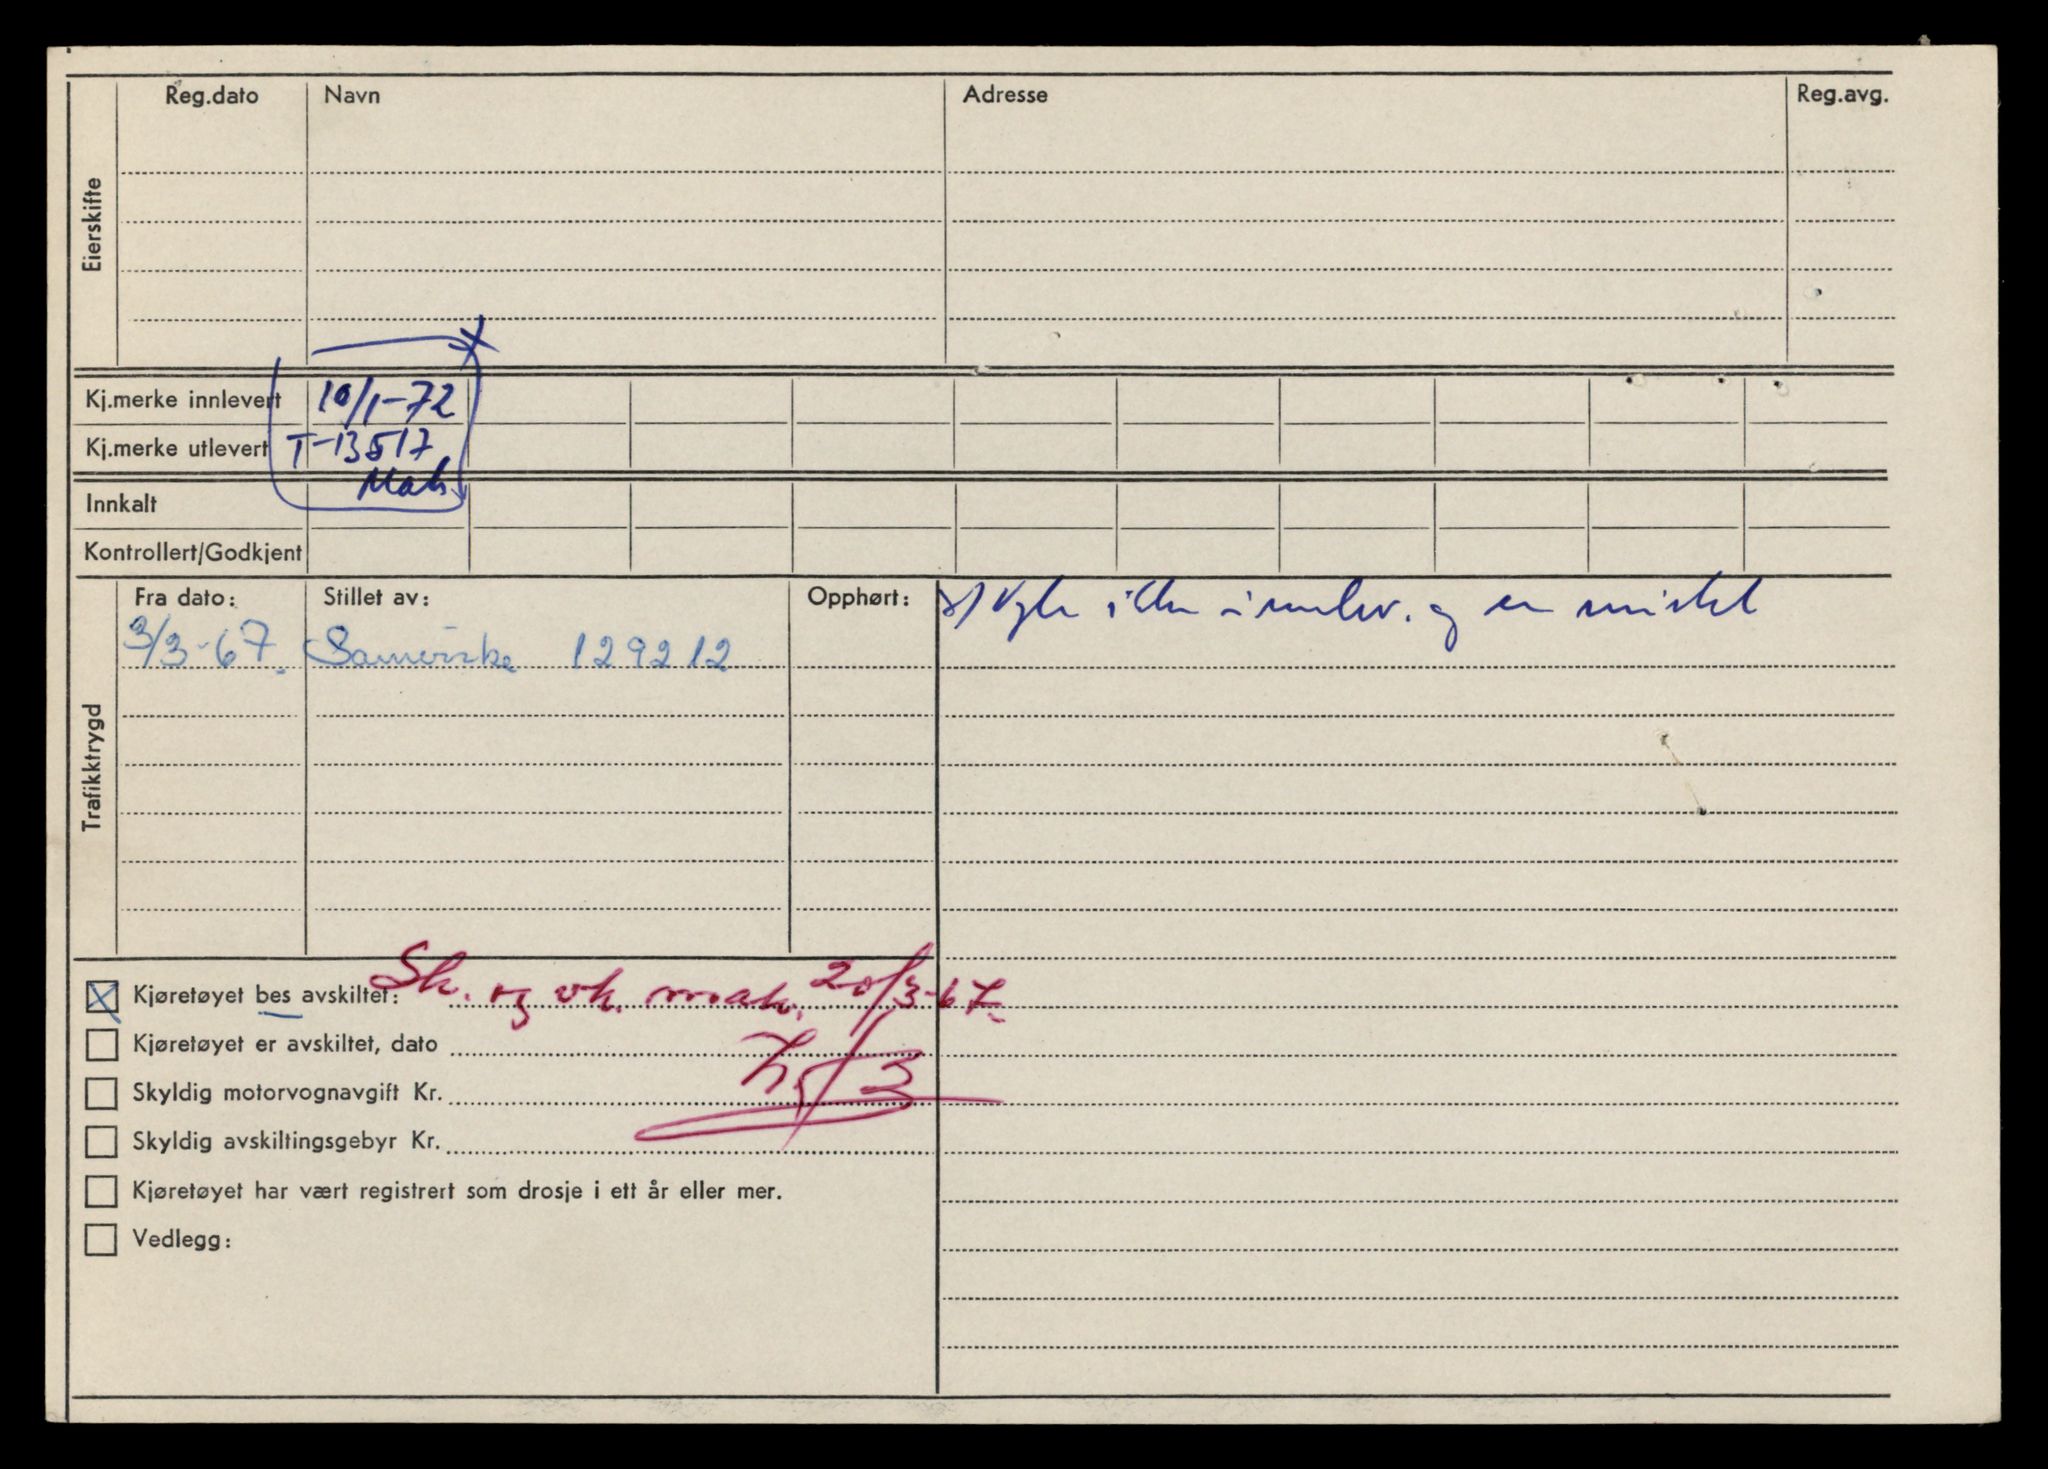 Reg.dato Navn Adresse Reg.avg.
Eierskifte
Kj.merke innlevert 10/1-72
Kj.merke utlevert T-13517
Mak
Innkalt
Kontrollert/Godkjent
Trafikktrygd
Fra dato: Stillet av: Opphørt: x) Vgk ikke innlev. og er mistet
3/3-67. Samvirke 129212
Kjøretøyet bes avskiltet: Sk. og vk. mak. 20/3-67.
Kjøretøyet er avskiltet, dato
Skyldig motorvognavgift Kr.
Skyldig avskiltingsgebyr Kr.
Kjøretøyet har vært registrert som drosje i ett år eller mer.
Vedlegg: